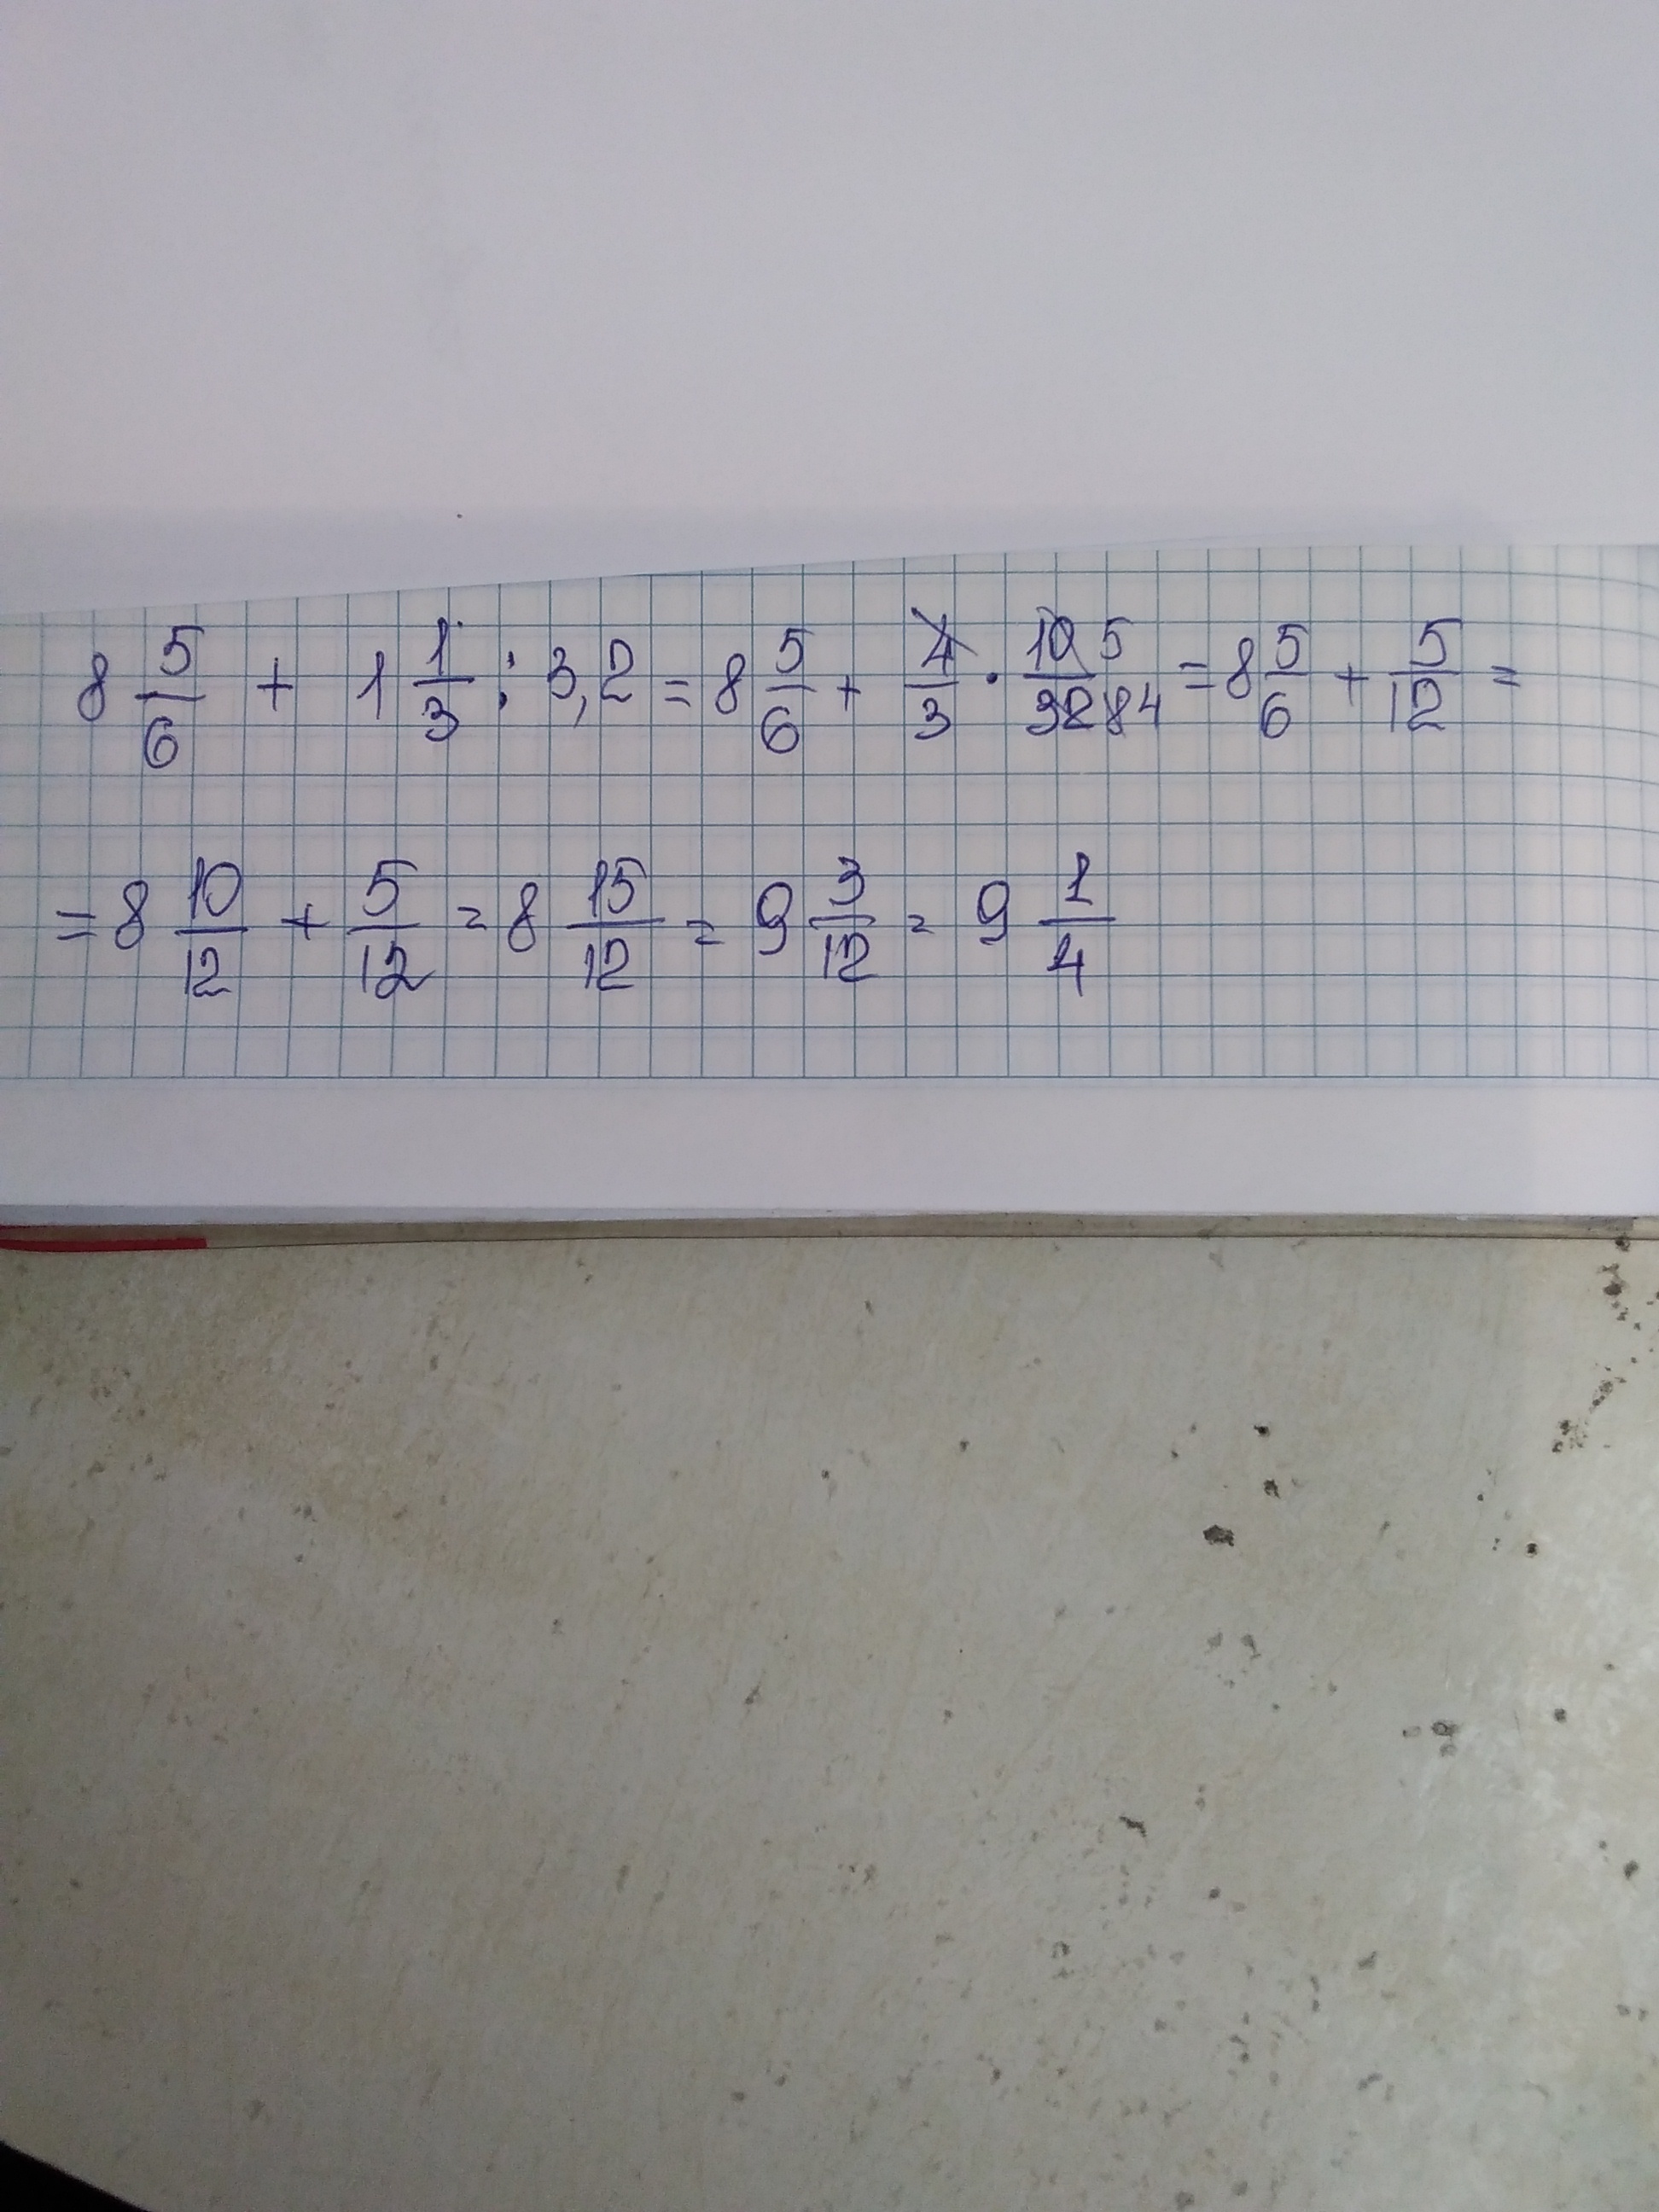 8 5/6 + 1 1/3 : 3,2 = 8 5/6 + 4/3 · 10 5/32 8 4 = 8 5/6 + 5/12 =
= 8 10/12 + 5/12 = 8 15/12 = 9 3/12 = 9 1/4